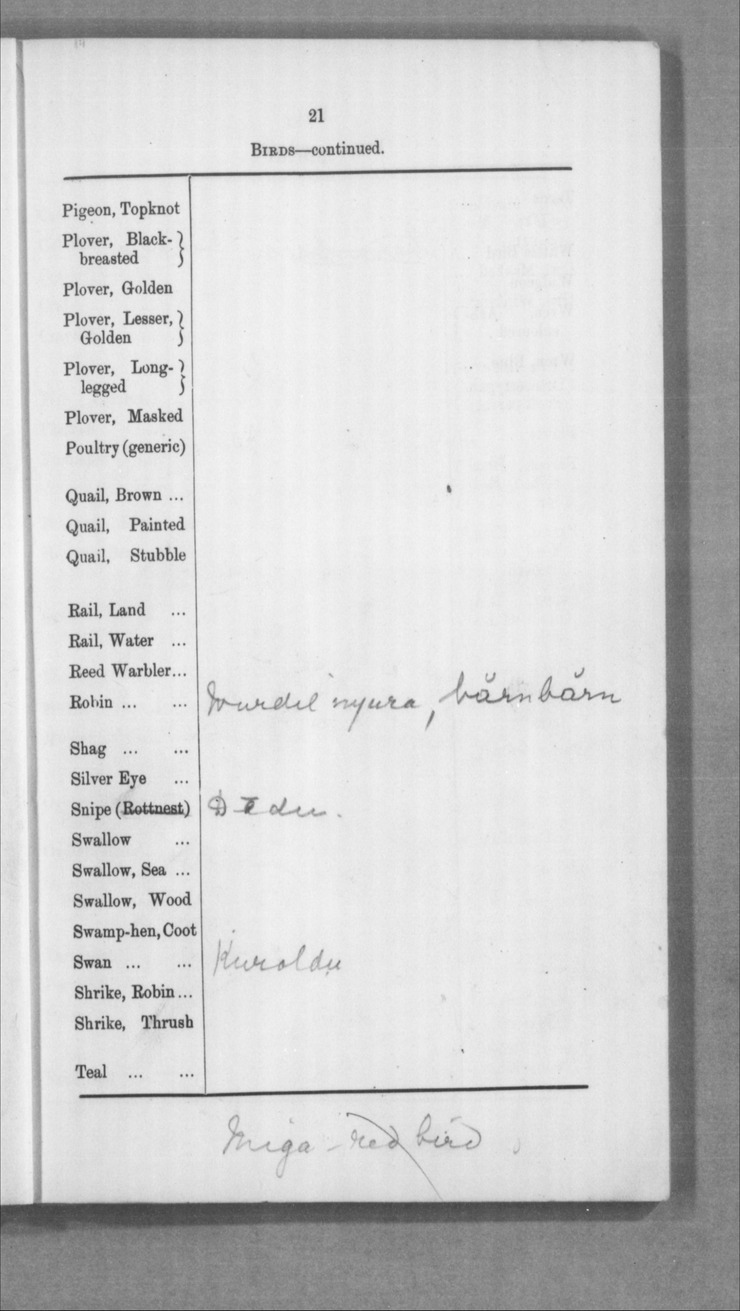 21
BIRDS—continued.
Pigeon, Topknot
Plover, Black-
breasted
Plover, Golden
Plover, Lesser,
Golden
Plover, Long-
legged
Plover, Masked
Poultry (generic)
Quail, Brown ...
Quail, Painted
Quail, Stubble
Rail, Land ...
Rail, Water ...
Reed Warbler...
Robin ... ... nyura, bărnbărn
Shag ... ...
Silver Eye ...
Snipe (Rottnest)
Swallow ...
Swallow, Sea ...
Swallow, Wood
Swamp-hen, Coot
Swan ... ... Kuroldu
Shrike, Robin...
Shrike, Thrush
Teal ... ...
Miga - red bird